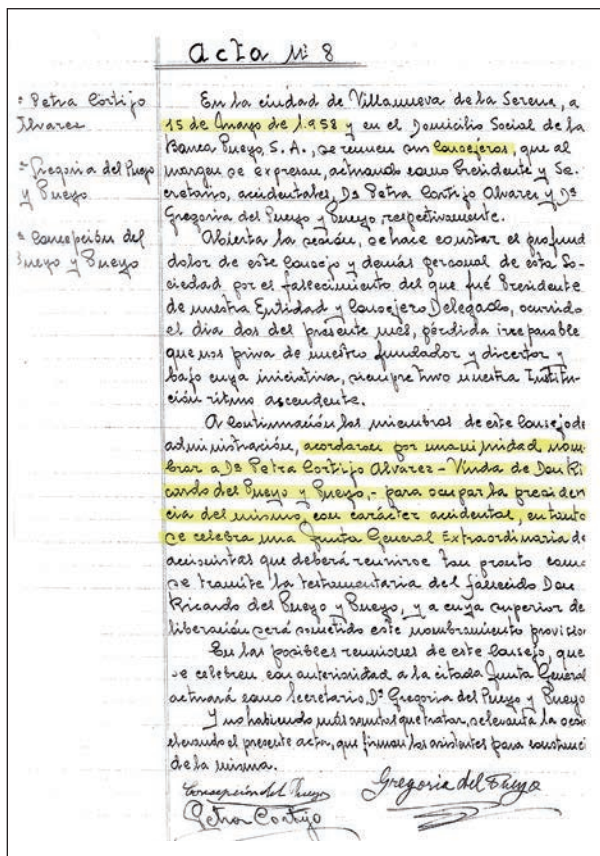 Acta Nº 8
= Petra Cortijo
Alvarez
= Gregoria del Pueyo
y Pueyo
= Concepción del
Pueyo y Pueyo
En la ciudad de Villanueva de la Serena, a
15 de Mayo de 1.958 y en el Domicilio Social de la
Banca Pueyo, S.A., se reunen sus Consejeros, que al
margen se expresan, actuando como Presidente y Se-
cretario, accidentales, Dª Petra Cortijo Alvarez y Dª
Gregoria del Pueyo y Pueyo respectivamente.
Abierta la sesión, se hace constar el profund
dolor de este Consejo y demás personal de esta So-
ciedad por el fallecimiento del que fué Presidente
de nuestra Entidad y Consejero Delegado, ocurrido
el dia dos del presente mes, pérdida irreparable
que nos priva de nuestro fundador y director y
bajo cuya iniciativa, siempre tuvo nuestra Institu-
ción ritmo ascendente.
A continuación los miembros de este Consejo de
administración, acordaron por unanimidad nom-
brar a Dª Petra Cortijo Alvarez - Viuda de Don Ri-
cardo del Pueyo y Pueyo,- para ocupar la presiden-
cia del mismo, con carácter accidental, en tanto
se celebra una Junta General Extraordinaria de
accionistas que deberá reunirse tan pronto como
se tramite la testamentaria del fallecido Don
Ricardo del Pueyo y Pueyo, y a cuya superior de
liberación será sometido este nombramiento provision
En las posibles reuniones de este Consejo, que
se celebren con anterioridad a la citada Junta General
actuará como Secretario, Dª Gregoria del Pueyo y Pueyo
Y no habiendo más asuntos que tratar, se levanta la sesi
levando el presente acta, que firman los asistentes para constanci
de la misma.
Concepción del Pueyo
Gregoria del Pueyo
Petra Cortijo